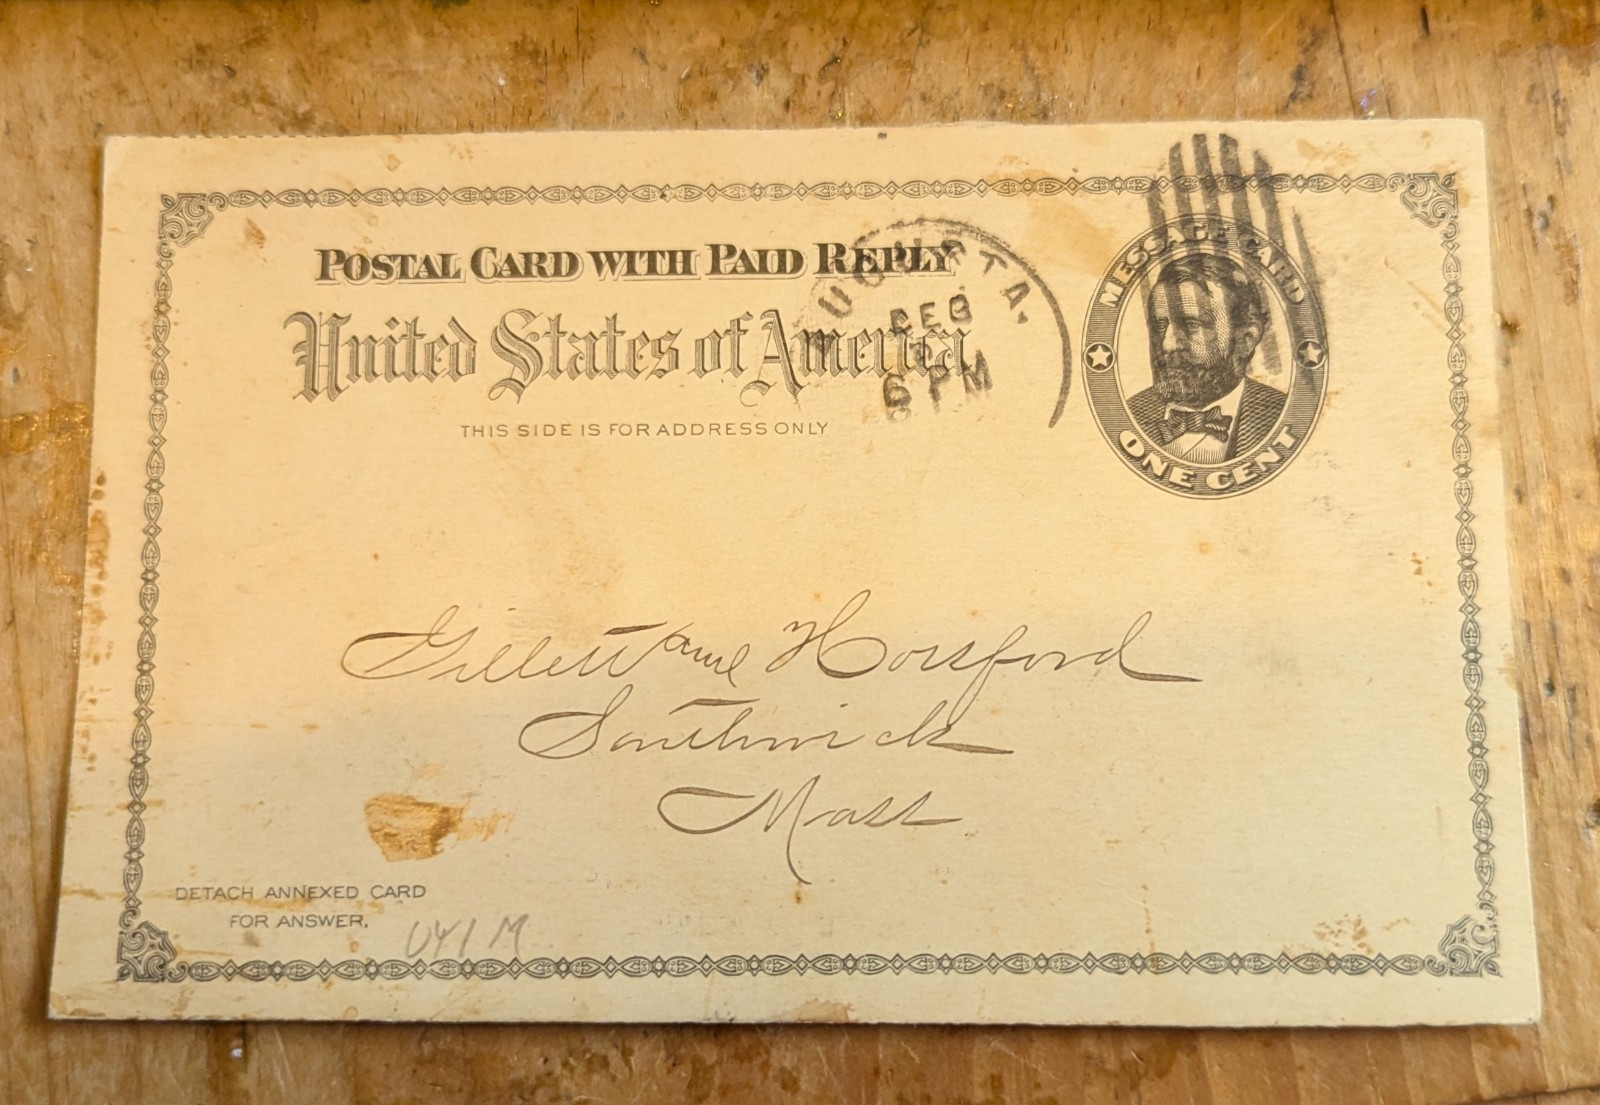 POSTAL CARD WITH PAID REPLY
United States of America
THIS SIDE IS FOR ADDRESS ONLY
MESSAGE CARD
ONE CENT
6 PM
Gillett and Horsford
Southwick
Mass
DETACH ANNEXED CARD
FOR ANSWER.
UY1M